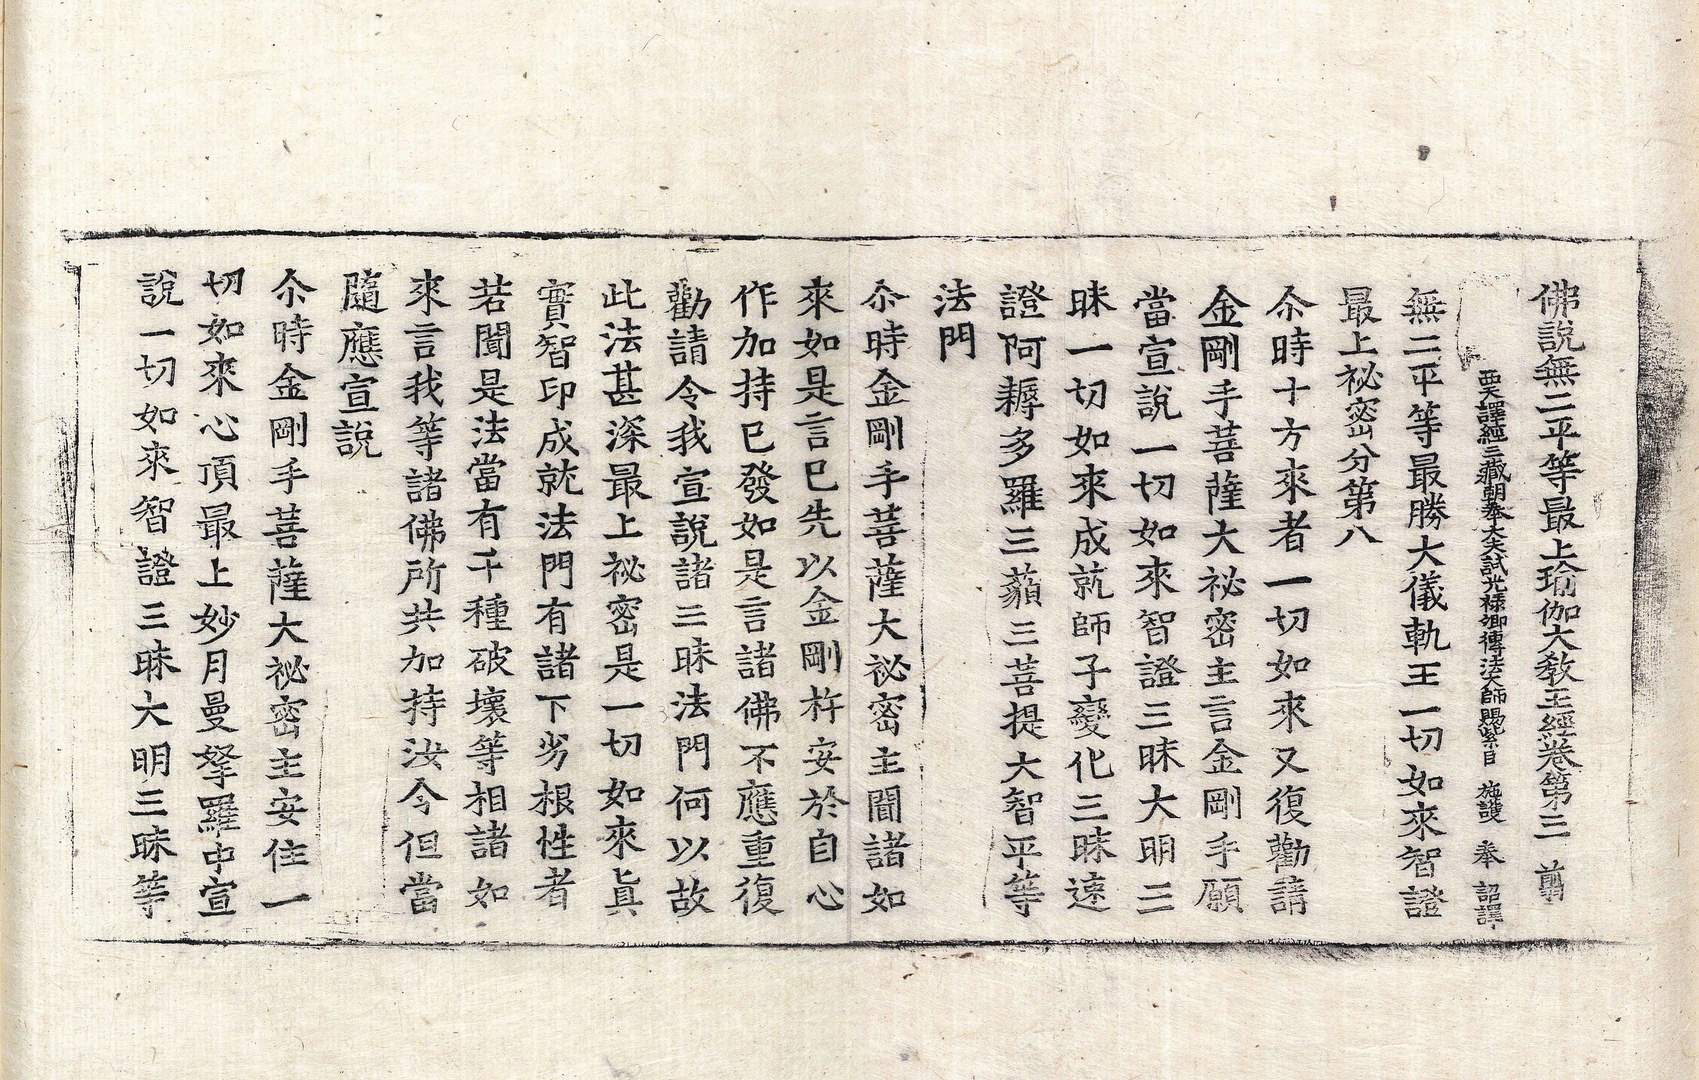 佛說無二平等最上瑜伽大敎王經卷第三 翦
西天譯經三藏朝奉大夫試光祿卿傳法大師賜紫臣 施護 奉 詔譯
無二平等最勝大儀軌王一切如來智證
最上祕密分第八
尒時十方來者一切如來又復勸請
金剛手菩薩大祕密主言金剛手願
當宣說一切如來智證三昧大明三
昧一切如來成就師子變化三昧速
證阿耨多羅三藐三菩提大智平等
法門
尒時金剛手菩薩大祕密主聞諸如
來如是言已先以金剛杵安於自心
作加持已發如是言諸佛不應重復
勸請令我宣說諸三昧法門何以故
此法甚深最上祕密是一切如來眞
實智印成就法門有諸下劣根性者
若聞是法當有千種破壞等相諸如
來言我等諸佛所共加持汝今但當
隨應宣說
尒時金剛手菩薩大祕密主安住一
切如來心頂最上妙月曼拏羅中宣
說一切如來智證三昧大明三昧等